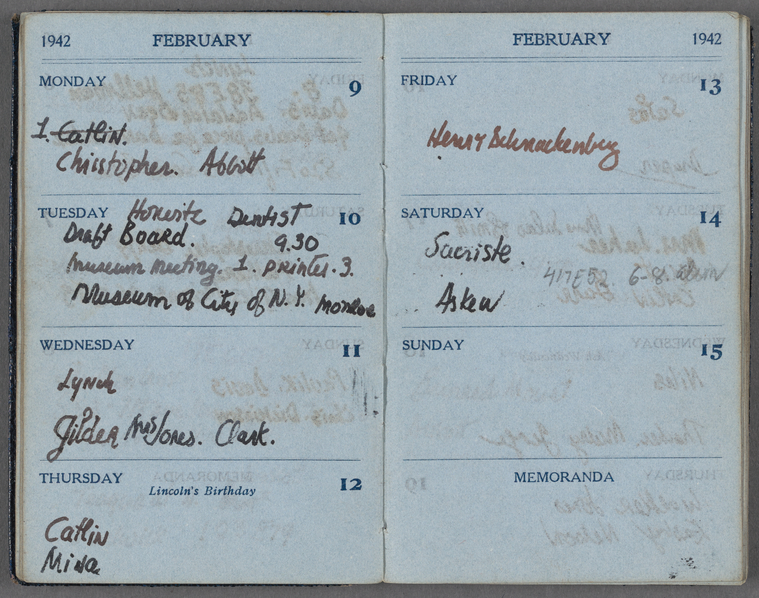 1942 FEBRUARY
MONDAY 9
1. Catlin.
Christopher. Abbott
TUESDAY 10
Horwitz Dentist
Draft Board. 9.30
Museum Meeting. 1. Printer. 3.
Museum of City of N.Y. Monroe
WEDNESDAY 11
Lynch
Gilder Mrs Jones. Clark.
THURSDAY 12
Lincoln's Birthday
Catlin
Mina
FEBRUARY 1942
FRIDAY 13
Henry Schnackenberg
SATURDAY 14
Sacriste.
417E52 6-8.
Askew
SUNDAY 15
MEMORANDA